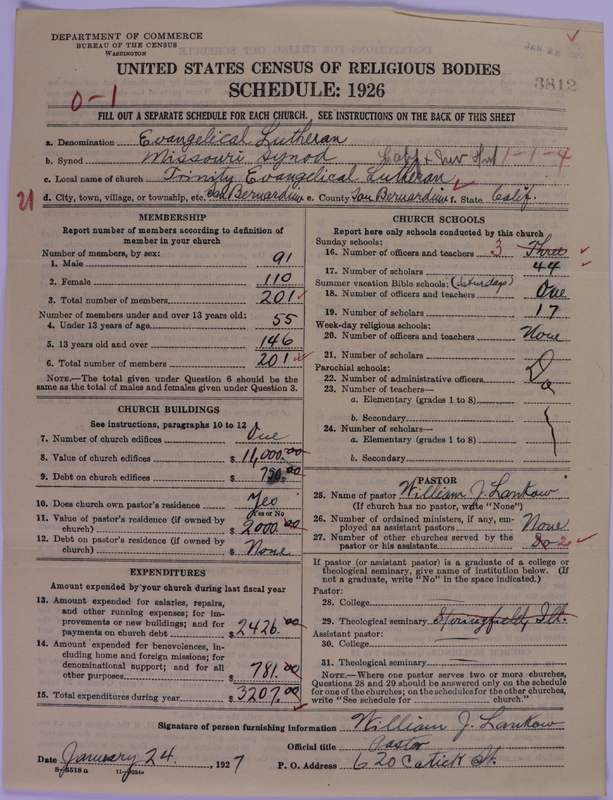 DEPARTMENT OF COMMERCE
BUREAU OF THE CENSUS
WASHINGTON
UNITED STATES CENSUS OF RELIGIOUS BODIES
SCHEDULE: 1926
3812
0-1
FILL OUT A SEPARATE SCHEDULE FOR EACH CHURCH. SEE INSTRUCTIONS ON THE BACK OF THIS SHEET
a. Denomination Evangelical Lutheran
b. Synod Missouri Synod Calif & Nev 1-1-4
c. Local name of church Trinity Evangelical Lutheran
21 d. City, town, village, or township, etc. San Bernardino e. County San Bernardino f. State Calif.
MEMBERSHIP
Report number of members according to definition of member in your church
Number of members, by sex:
1. Male 91
2. Female 110
3. Total number of members 201
Number of members under and over 13 years old:
4. Under 13 years of age 55
5. 13 years old and over 146
6. Total number of members 201
NOTE.—The total given under Question 6 should be the same as the total of males and females given under Question 3.
CHURCH BUILDINGS
See instructions, paragraphs 10 to 12
7. Number of church edifices One
8. Value of church edifices $ 11,000.00
9. Debt on church edifices $ 750.00
10. Does church own pastor's residence Yes
Yes or No
11. Value of pastor's residence (if owned by church) $ 2000.00
12. Debt on pastor's residence (if owned by church) $ None
EXPENDITURES
Amount expended by your church during last fiscal year
13. Amount expended for salaries, repairs, and other running expenses; for improvements or new buildings; and for payments on church debt $ 2426.00
14. Amount expended for benevolences, including home and foreign missions; for denominational support; and for all other purposes $ 781.00
15. Total expenditures during year $ 3207.00
CHURCH SCHOOLS
Report here only schools conducted by this church
Sunday schools:
16. Number of officers and teachers 3 Three
17. Number of scholars 44
Summer vacation Bible schools: (Saturdays)
18. Number of officers and teachers One
19. Number of scholars 17
Week-day religious schools:
20. Number of officers and teachers None
21. Number of scholars Do
Parochial schools:
22. Number of administrative officers
23. Number of teachers—
a. Elementary (grades 1 to 8)
b. Secondary
24. Number of scholars—
a. Elementary (grades 1 to 8)
b. Secondary
PASTOR
25. Name of pastor William J. Lankow
(If church has no pastor, write "None")
26. Number of ordained ministers, if any, employed as assistant pastors None
27. Number of other churches served by the pastor or his assistants Do 2
If pastor (or assistant pastor) is a graduate of a college or theological seminary, give name of institution below. (If not a graduate, write "No" in the space indicated.)
Pastor:
28. College
29. Theological seminary Springfield, Ill.
Assistant pastor:
30. College
31. Theological seminary
NOTE.—Where one pastor serves two or more churches, Questions 28 and 29 should be answered only on the schedule for one of the churches; on the schedules for the other churches, write "See schedule for church."
Signature of person furnishing information William J. Lankow
Official title Pastor
Date January 24, 1927 P. O. Address 620 Catick St.
8-5518a